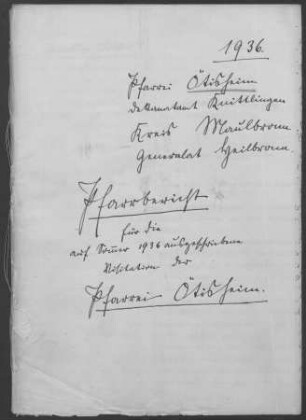 1936.
Pfarrei Ötisheim
Dekanatamt Knittlingen
Kreis Maulbronn
Generalat Heilbronn
Pfarrbericht
für die
auf Sommer 1936 ausgeschriebene
Visitation der
Pfarrei Ötisheim.